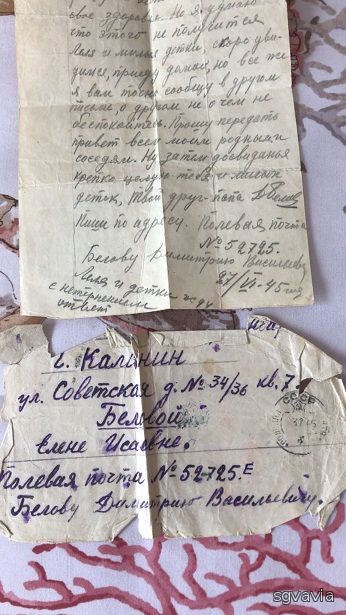 свое здоровье. Но я думаю
что этого не получится
Леля и милые детки, скоро уви-
димся, приеду домой, но все же
я вам точно сообщу в другом
письме о другом не о чем не
беспокойтесь. Прошу передать
привет всем моим родным и
соседям. Ну затем досвиданья
крепко целую тебя и милых
деток, Твой друг-папа
Пиши по адресу. Полевая почта
№ 52725.
Белову Димитрию Васильевичу
27/VI-45 год
Леля и детки жду
с нетерпением
ответ
г. Калинин
ул. Советская д. № 34/36 кв. 7.
Беловой
Елене Исаевне.
Полевая почта № 52725.Е
Белову Димитрию Васильевичу.
СССР
sgvavia